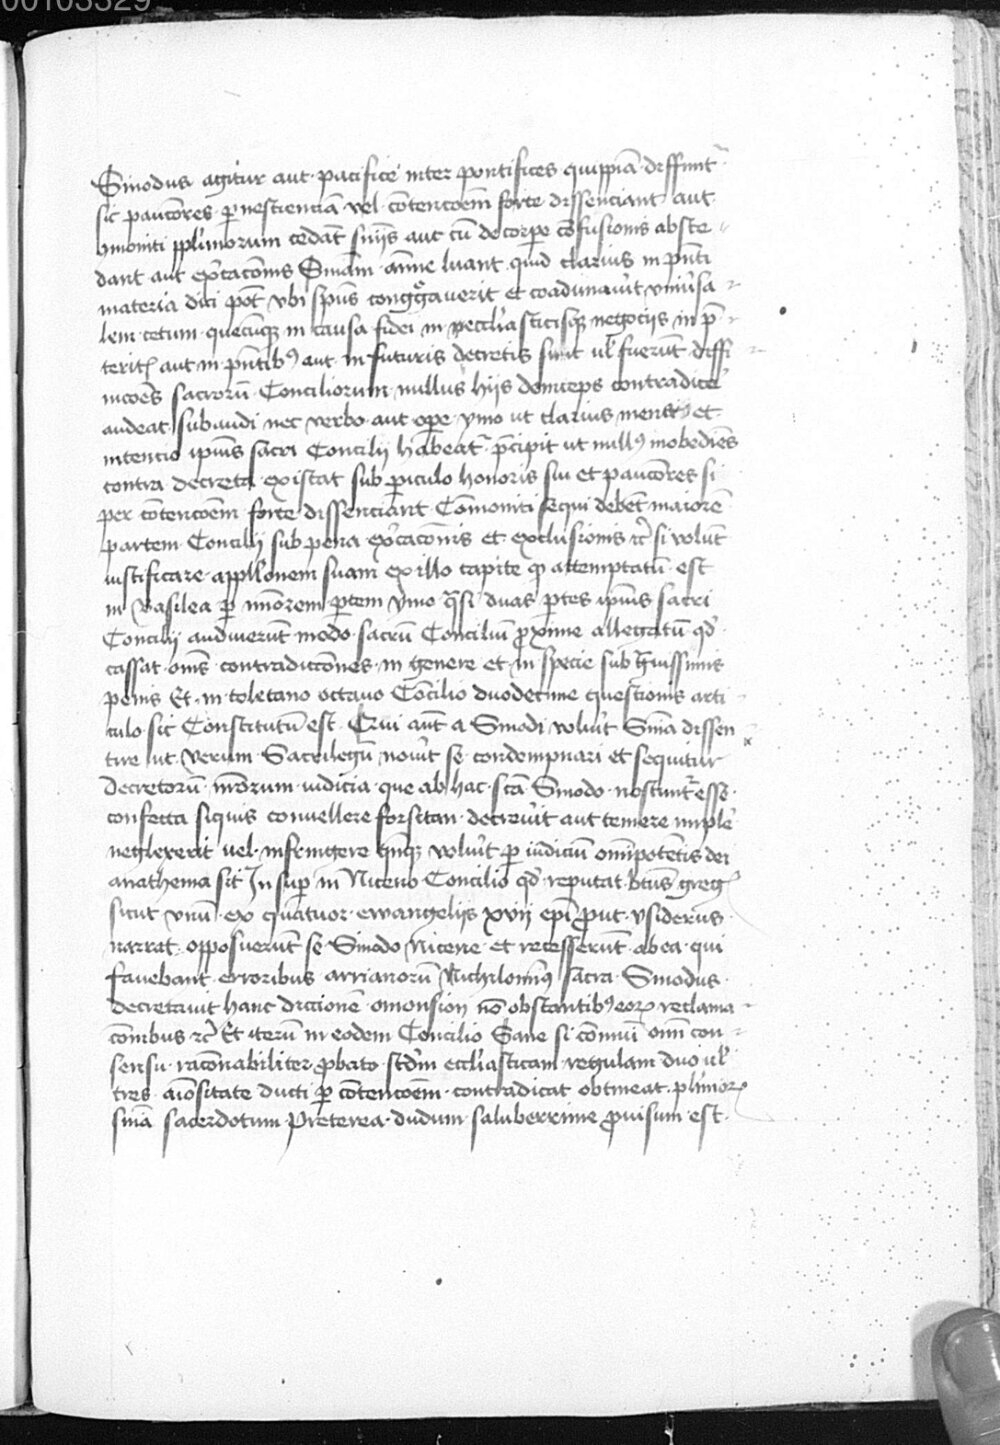 00103329
Sinodus agitur aut pacifice inter pontifices quippiā diffinit̄
sic pauc̄ores p̱ nescienciā vel cōtencōem forte dissenciant aut
hmoniti pplimorum cedāt sniis aut cū de corpe cōfusionis absce
dant aut exc̄cacōnis Sniam anne luant quid clarius in pn̄ti
materia dici pōt vbi spūs congg̊averit et coadunauīt vniūsa
lem cetum quecūqꝫ in causa fidei in eccliasticisqꝫ negociis in p̄
teritꝭ aut in pn̄tibꝰ aut in futuris decretis sunt ul̄ fuerūt diffi
nicōes sacrorū Conciliorum nullus hiis deinceps contradice̓
audeat subaudi nec verbo aut ope ymo ut clarius mens et
intencio ipius sacri Concilii habeat̄ p̄cipit ut nullꝰ inobediēs
contra decreta existat sub p̱iculo honoris sui et pauc̄ores si
per cōtencōem forte dissenciant Cōmoniti sequi debēt maiorē
partem Concilii sub pena exc̄cacōnis et exclusionis rc̄ si volūt
iustificare appllonem suam ex illo capite qꝫ attemptatū est
in Basilea p̱ minorem p̱tem ymo q̄si duas p̱tes ipius sacri
Concilii audiuerūt modo sacrū Conciliū ꝓxime allegatū qd̓
cassat oms̄ contradiccōnes in genere et in specie sub gͣuissimis
penis Et in toletano octauo Cōcilio duodecime questionis arti
culo sic Constitutū est Qui aūt a Sinodi voluīt Snīa dissen
tire ut verum Sacrilegū nouīt se condempnari et sequitur
Decretorū nr̄orum iudicia que ab hac scā Sinodo noscunt̄ esse
confecta siquis conuellere forsitan decreuīt aut temere imple̓
neglexerit uel infringere qn̄qꝫ voluīt p̱ iudiciū omīpotētis dei
anathema sit In sup̱ in Niceno Concilio qd̓ reputat btūs gregꝰ
sicut vnū ex quatuor ewangeliis xvii ep̄i ꝓut ysiderus
narrat opposuerūt se Sinodo Nicene et recesserūt ab ea qui
fauebant erroribus arrianorū Nichilomīꝰ sacra Sinodus
decretauit hanc diccionē omousion nō obstantibꝰ eoꝝ reclama
cōnibus rc̄ Et iterū in eodem Concilio Sane si cōmū oim̄ con
sensu racōnabiliter ꝓbato scd̓m eccliasticam regulam duo ul̄
tres aiōsitate ducti p̱ cōtencōem contradicat obtineat plimoꝝ
snīa sacerdotum Preterea dudum saluberrime ꝓuisum est